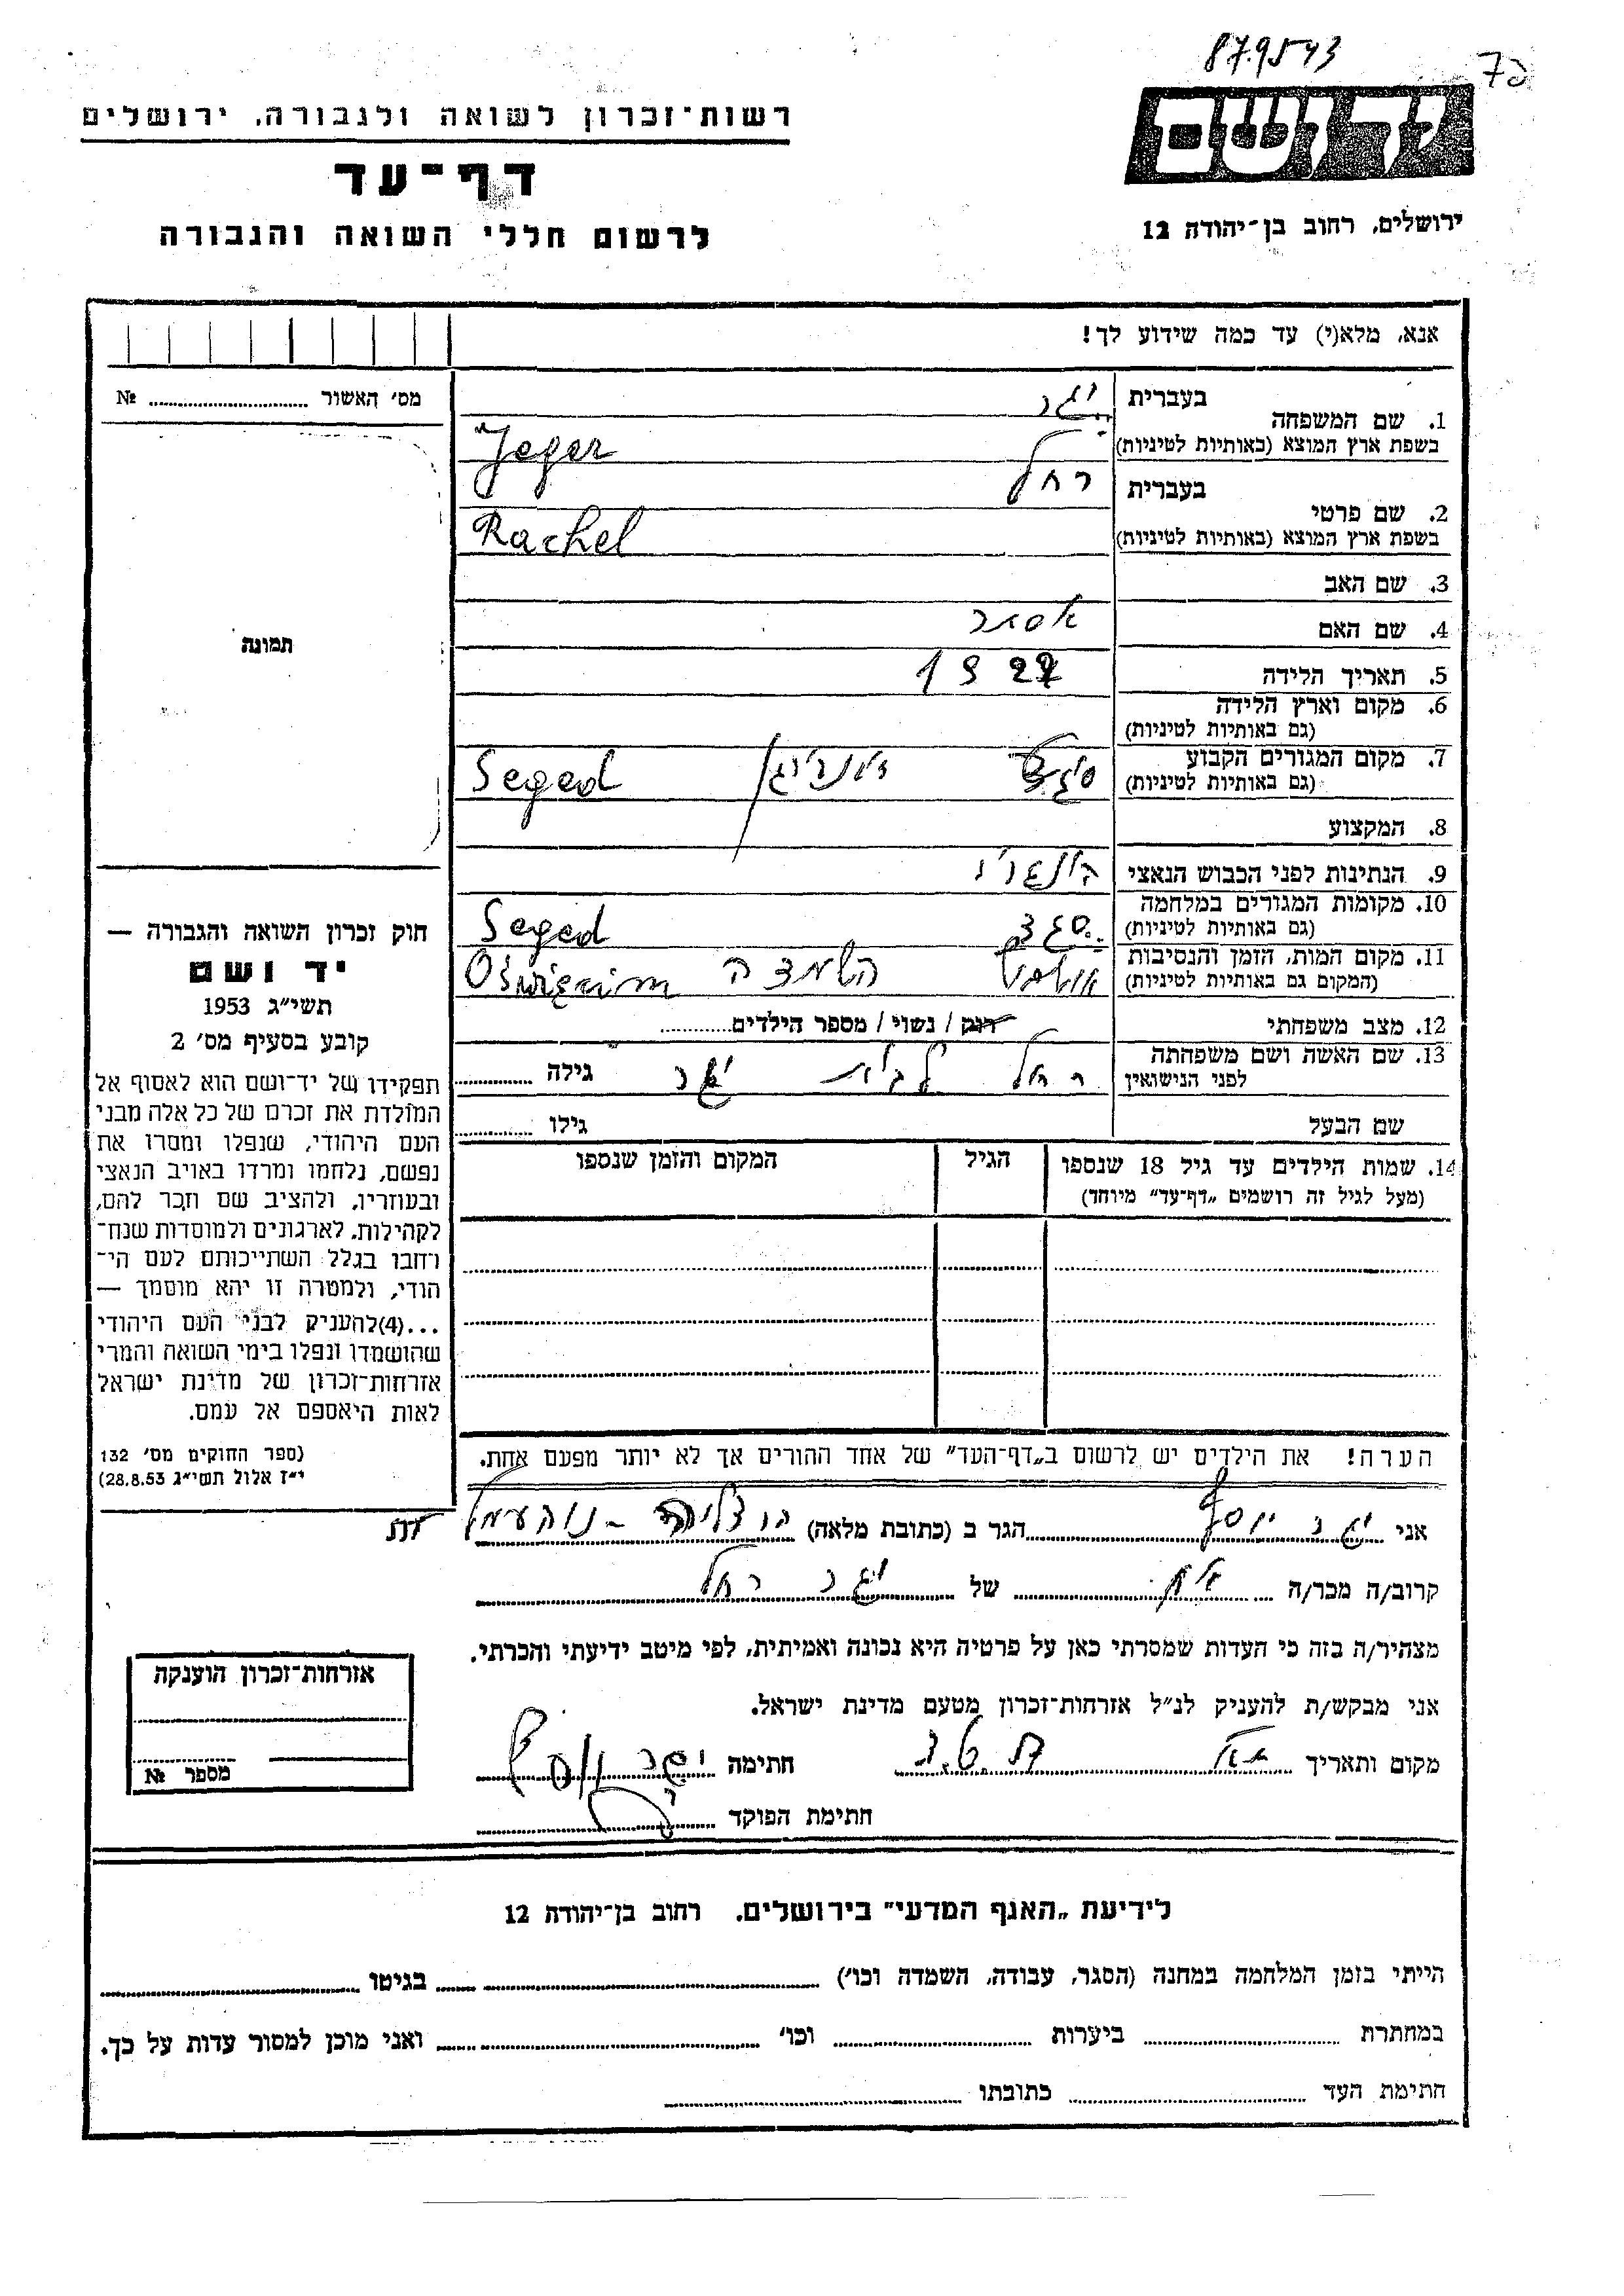 879543
רשות־זכרון לשואה ולגבורה, ירושלים
דף־עד
לרשום חללי השואה והגבורה
יד ושם
ירושלים, רחוב בן־יהודה 12
אנא, מלא(י) עד כמה שידוע לך!
מס׳ האשור № 
תמונה
חוק זכרון השואה והגבורה —
יד ושם
תשי״ג 1953
קובע בסעיף מס׳ 2
תפקידו של יד־ושם הוא לאסוף אל
המולדת את זכרם של כל אלה מבני
העם היהודי, שנפלו ומסרו את
נפשם, נלחמו ומרדו באויב הנאצי
ובעוזריו, ולהציב שם וזכר להם,
לקהילות, לארגונים ולמוסדות שנח־
רחבו בגלל השתייכותם לעם הי־
הודי, ולמטרה זו יהא מוסמך —
...(4)להעניק לבני העם היהודי
שהושמדו ונפלו בימי השואה והמרי
אזרחות־זכרון של מדינת ישראל
לאות היאספם אל עמם.
(ספר החוקים מס׳ 132
י״ז אלול תשי״ג 28.8.53)
1. שם המשפחה
בעברית יגר
בשפת ארץ המוצא (באותיות לטיניות) Jeger
2. שם פרטי
בעברית רחל
בשפת ארץ המוצא (באותיות לטיניות) Rachel
3. שם האב
4. שם האם אסתר
5. תאריך הלידה 1927
6. מקום וארץ הלידה
(גם באותיות לטיניות)
7. מקום המגורים הקבוע
(גם באותיות לטיניות) סגד Seged
8. המקצוע
9. הנתינות לפני הכבוש הנאצי הונגרי
10. מקומות המגורים במלחמה
(גם באותיות לטיניות) סגד Seged
11. מקום המות, הזמן והנסיבות
(המקום גם באותיות לטיניות) השמדה Oświęcim
12. מצב משפחתי רוק / נשוי / מספר הילדים
13. שם האשה ושם משפחתה
לפני הנישואין רחל לבית יגר גילה
שם הבעל גילו
14. שמות הילדים עד גיל 18 שנספו הגיל המקום והזמן שנספו
(מעל לגיל זה רושמים „דף־עד״ מיוחד)
הערה! את הילדים יש לרשום ב„דף־העד״ של אחד ההורים אך לא יותר מפעם אחת.
אני יגר יוסף הגר ב (כתובת מלאה) הרצליה - נוה עמל
קרוב/ה מכר/ה אח של יגר רחל
מצהיר/ה בזה כי העדות שמסרתי כאן על פרטיה היא נכונה ואמיתית, לפי מיטב ידיעתי והכרתי.
אני מבקש/ת להעניק לנ״ל אזרחות־זכרון מטעם מדינת ישראל.
מקום ותאריך חתימה יגר יוסף
חתימת הפוקד
אזרחות־זכרון הוענקה
מספר №
לידיעת „האגף המדעי״ בירושלים, רחוב בן־יהודה 12
הייתי בזמן המלחמה במחנה (הסגר, עבודה, השמדה וכו׳) בגיטו
במחתרת ביערות וכו׳ ואני מוכן למסור עדות על כך.
חתימת העד כתובתו